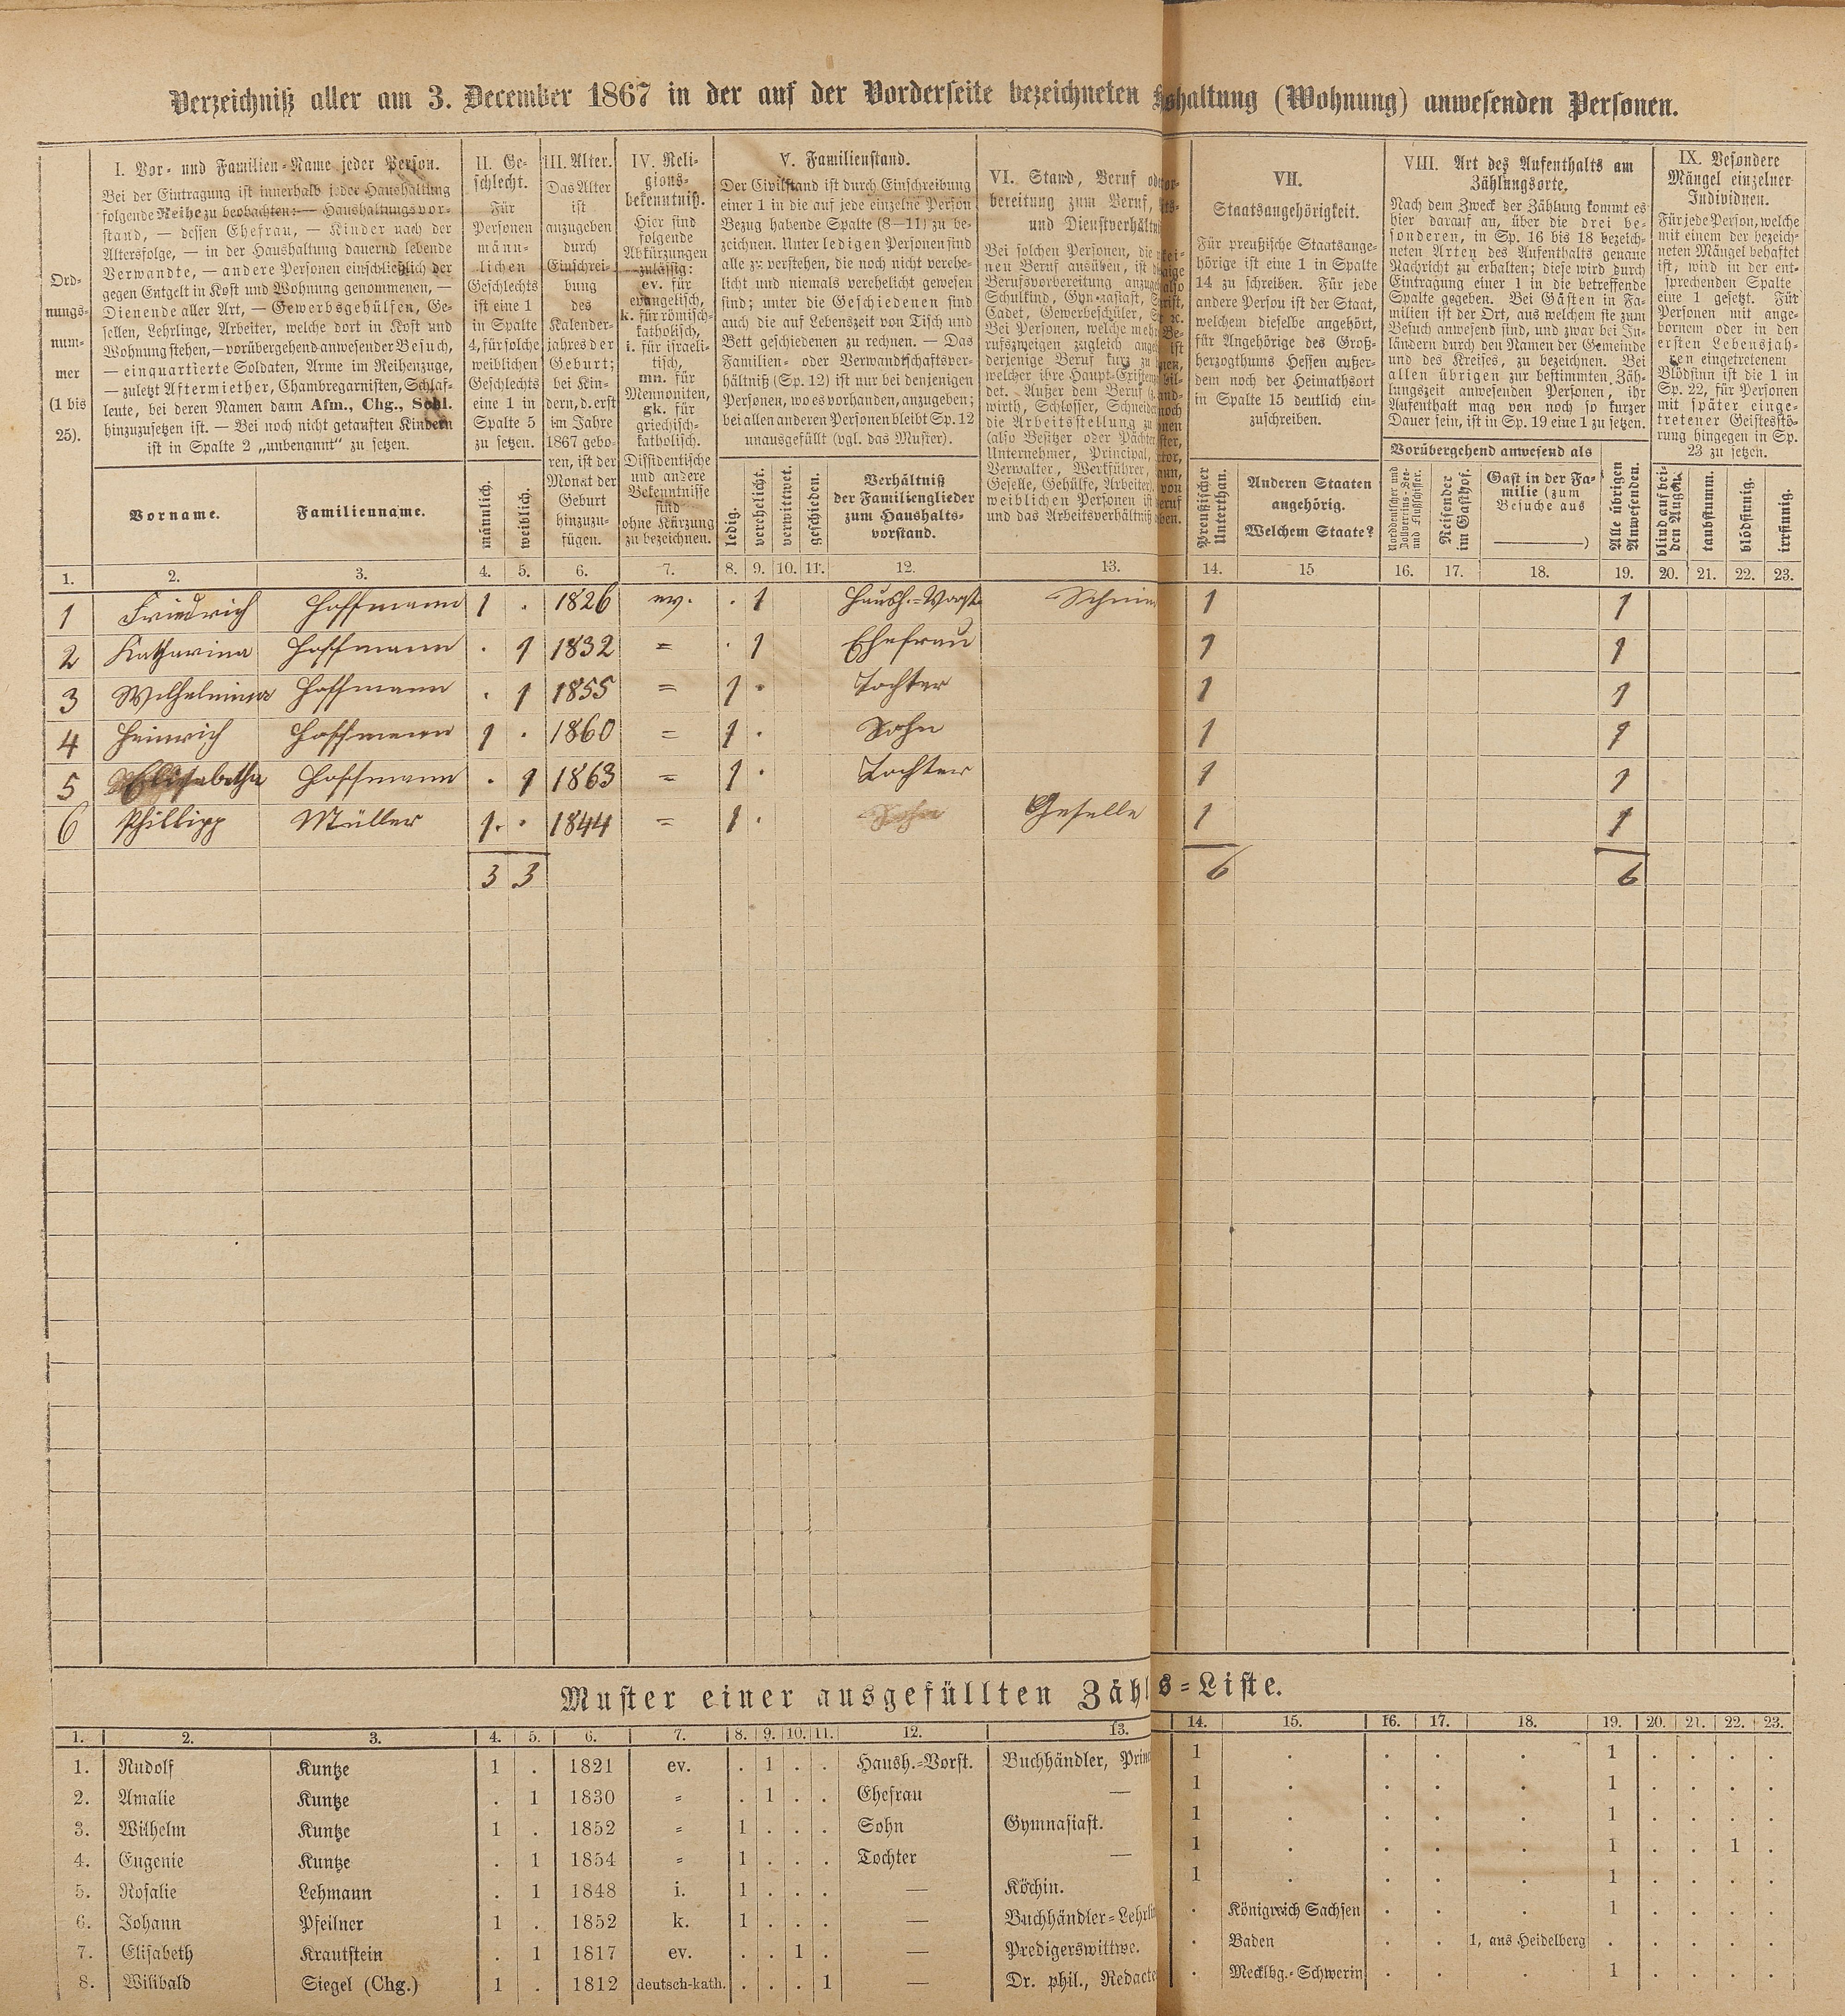 Verzeichniß aller am 3. December 1867 in der auf der Vorderseite bezeichneten shaltung (Wohnung) anwesenden Personen.
Ord-
nungs-
num-
mer
(1 bis
25).
I. Vor- und Familien-Name jeder Person.
Bei der Eintragung ist innerhalb jeder Haushaltung
folgende Reihe zu beobachten: — Haushaltungsvor-
stand, — dessen Ehefrau, — Kinder nach der
Altersfolge, — in der Haushaltung dauernd lebende
Verwandte, — andere Personen einschließlich der
gegen Entgelt in Kost und Wohnung genommenen, —
Dienende aller Art, — Gewerbsgehülfen, Ge-
sellen, Lehrlinge, Arbeiter, welche dort in Kost und
Wohnung stehen, — vorübergehend anwesender Besuch,
— einquartierte Soldaten, Arme im Reihenzuge,
— zuletzt Aftermiether, Chambregarnisten, Schlaf-
leute, bei deren Namen dann Afm., Chg., Schl.
hinzuzusetzen ist. — Bei noch nicht getauften Kindern
ist in Spalte 2 „unbenannt“ zu setzen.
Vorname.
Familienname.
II. Ge-
schlecht.
Für
Personen
männ-
lichen
Geschlechts
ist eine 1
in Spalte
4, für solche
weiblichen
Geschlechts
eine 1 in
Spalte 5
zu setzen.
männlich.
weiblich.
III. Alter.
Das Alter
ist
anzugeben
durch
Einschrei-
bung
des
Kalender-
jahres der
Geburt;
bei Kin-
dern, d. erst
im Jahre
1867 gebo-
ren, ist der
Monat der
Geburt
hinzuzu-
fügen.
IV. Reli-
gions-
bekenntniß.
Hier sind
folgende
Abkürzungen
zulässig:
ev. für
evangelisch,
k. für römisch-
katholisch,
i. für israeli-
tisch,
mn. für
Mennoniten,
gk. für
griechisch-
katholisch.
Dissidentische
und andere
Bekenntnisse
sind
ohne Kürzung
zu bezeichnen.
V. Familienstand.
Der Civilstand ist durch Einschreibung
einer 1 in die auf jede einzelne Person
Bezug habende Spalte (8—11) zu be-
zeichnen. Unter ledigen Personen sind
alle zu verstehen, die noch nicht verehe-
licht und niemals verehelicht gewesen
sind; unter die Geschiedenen sind
auch die auf Lebenszeit von Tisch und
Bett geschiedenen zu rechnen. — Das
Familien- oder Verwandtschaftsver-
hältniß (Sp. 12) ist nur bei denjenigen
Personen, wo es vorhanden, anzugeben;
bei allen anderen Personen bleibt Sp. 12
unausgefüllt (vgl. das Muster).
ledig.
verehelicht.
verwittwet.
geschieden.
Verhältniß
der Familienglieder
zum Haushalts-
vorstand.
VI. Stand, Beruf oder
bereitung zum Beruf,
und Dienstverhältn
Bei solchen Personen, die
nen Beruf ausüben, ist
Berufsvorbereitung
Schulkind, Gymnasiast,
Cadet, Gewerbeschüler,
Bei Personen, welche
rufszweigen zugleich
derjenige Beruf kurz zu
welcher ihre Haupt-
det. Außer dem Beruf
wirth, Schlosser, Schneider
die Arbeitsstellung zu
(also Besitzer oder Pächter
Unternehmer, Principal,
Verwalter, Werkführer,
Geselle, Gehülfe, Arbeiter).
weiblichen Personen ist
und das Arbeitsverhältniß
VII.
Staatsangehörigkeit.
Für preußische Staatsange-
hörige ist eine 1 in Spalte
14 zu schreiben. Für jede
andere Person ist der Staat,
welchem dieselbe angehört,
für Angehörige des Groß-
herzogthums Hessen außer-
dem noch der Heimathsort
in Spalte 15 deutlich ein-
zuschreiben.
Preußischer
Unterthan.
Anderen Staaten
angehörig.
Welchem Staate?
VIII. Art des Aufenthalts am
Zählungsorte.
Nach dem Zweck der Zählung kommt es
hier darauf an, über die drei be-
sonderen, in Sp. 16 bis 18 bezeich-
neten Arten des Aufenthalts genaue
Nachricht zu erhalten; diese wird durch
Eintragung einer 1 in die betreffende
Spalte gegeben. Bei Gästen in Fa-
milien ist der Ort, aus welchem sie zum
Besuch anwesend sind, und zwar bei In-
ländern durch den Namen der Gemeinde
und des Kreises, zu bezeichnen. Bei
allen übrigen zur bestimmten Zäh-
lungszeit anwesenden Personen, ihr
Aufenthalt mag von noch so kurzer
Dauer sein, ist in Sp. 19 eine 1 zu setzen.
Vorübergehend anwesend als
Norddeutscher und
Zollvereins-See-
und Flußschiffer.
Reisender
im Gasthof.
Gast in der Fa-
milie (zum
Besuche aus
)
Alle übrigen
Anwesenden.
IX. Besondere
Mängel einzelner
Individuen.
Für jede Person, welche
mit einem der bezeich-
neten Mängel behaftet
ist, wird in der ent-
sprechenden Spalte
eine 1 gesetzt. Für
Personen mit ange-
bornem oder in den
ersten Lebensjah-
ren eingetretenem
Blödsinn ist die 1 in
Sp. 22, für Personen
mit später einge-
tretener Geistesstö-
rung hingegen in Sp.
23 zu setzen.
blind auf bei-
den Augen.
taubstumm.
blödsinnig.
irrsinnig.
1. 2. 3. 4. 5. 6. 7. 8. 9. 10. 11. 12. 13. 14. 15 16. 17. 18. 19. 20. 21. 22. 23.
1 Friedrich Hoffmann 1 . 1826 ev. . 1 Haush.-Vorst. Schmie 1 1
2 Katharina Hoffmann . 1 1832 = . 1 Ehefrau 1 1
3 Wilhelmina Hoffmann . 1 1855 = 1 . Tochter 1 1
4 Heinrich Hoffmann 1 . 1860 = 1 . Sohn 1 1
5 Elisabetha Hoffmann . 1 1863 = 1 . Tochter 1 1
6 Phillipp Müller 1 . 1844 = 1 . Geselle 1 1
3 3 6 6
Muster einer ausgefüllten Zähl s-Liste.
1. 2. 3. 4. 5. 6. 7. 8. 9. 10. 11. 12. 13. 14. 15. 16. 17. 18. 19. 20. 21. 22. 23.
1. Rudolf Kuntze 1 . 1821 ev. . 1 . . Haush.-Vorst. Buchhändler, Prin 1 . . . . 1 . . . .
2. Amalie Kuntze . 1 1830 = . 1 . . Ehefrau — 1 . . . . 1 . . . .
3. Wilhelm Kuntze 1 . 1852 = 1 . . . Sohn Gymnasiast. 1 . . . . 1 . . . .
4. Eugenie Kuntze . 1 1854 = 1 . . . Tochter — 1 . . . . 1 . . 1 .
5. Rosalie Lehmann . 1 1848 i. 1 . . . — Köchin. 1 . . . . 1 . . . .
6. Johann Pfeilner 1 . 1852 k. 1 . . . — Buchhändler-Lehrli . Königreich Sachsen . . . 1 . . . .
7. Elisabeth Krautstein . 1 1817 ev. . . 1 . — Predigerswittwe. . Baden . . 1, aus Heidelberg . . . . .
8. Wilibald Siegel (Chg.) 1 . 1812 deutsch-kath. . . . 1 — Dr. phil., Redacte . Mecklbg.-Schwerin . . . 1 . . . .